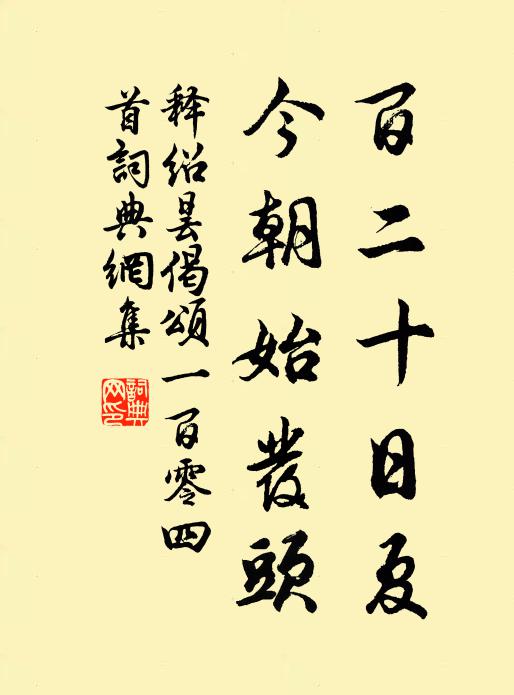 百二十日夏
今朝始發頭
释绍昙偈頌一百零四
首詞典網集
詞典网印